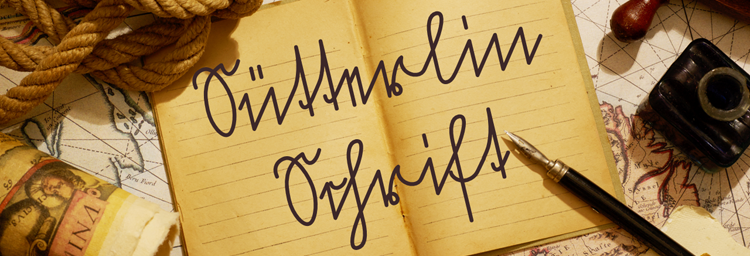 Sütterlin
Schrift